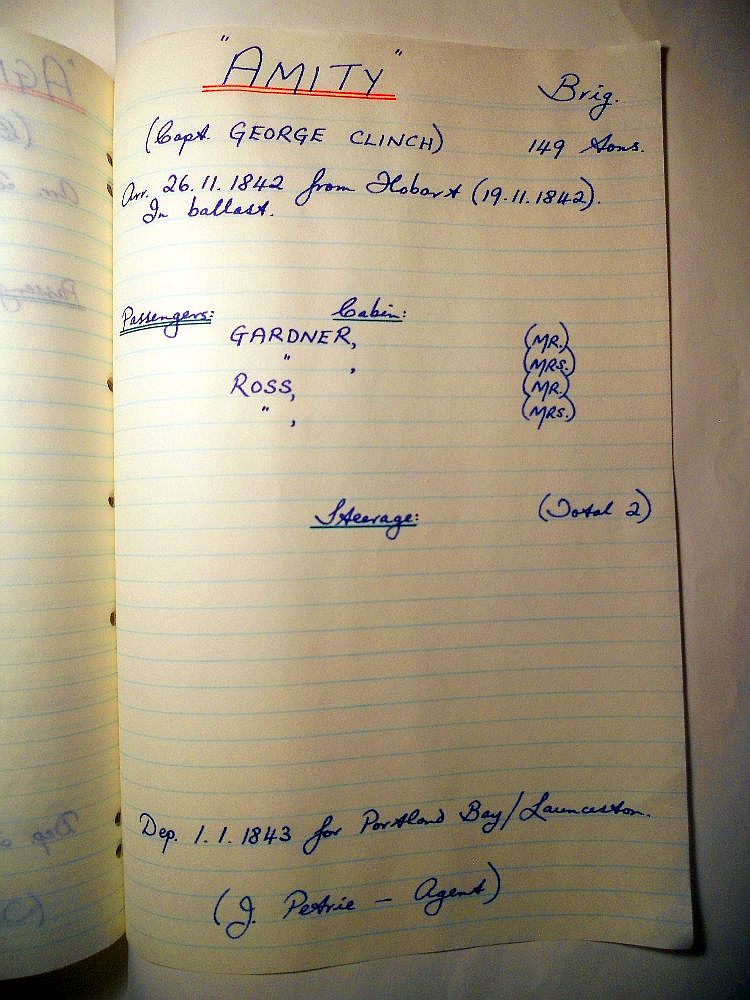 "AMITY"
Brig.
(Capt. GEORGE CLINCH) 149 tons.
Arr. 26.11.1842 from Hobart (19.11.1842).
In ballast.
Passengers: Cabin:
GARDNER, (MR.)
" , (MRS.)
ROSS, (MR.)
" , (MRS.)
Steerage: (Total 2)
Dep. 1.1.1843 for Portland Bay/Launceston.
(J. Petrie - Agent)